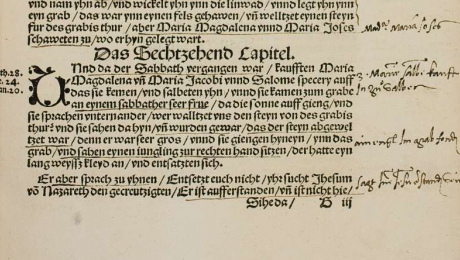 vnd nam yhn ab/vnd wickelt yhn ynn die linwad/vnnd legt yhn ynn
eyn grab/das war ynn eynen fels gehawen/vn̄ welltzet eynen steyn
fur des grabis thur/aber Maria Magdalena vnnd Maria Joses
schaweten zu/wo er hyn gelegt wart.
Das Sechtzehend Capitel.
VNnd da der Sabbath vergangen war/kaufften Maria
Magdalena vn̄ Maria Jacobi vnnd Salome specery auff
das sie kemen/vnd salbeten yhn/vnnd sie kamen zum grabe
an eynem sabbather seer frue/da die sonne auff gieng/vnd
sie sprachen vnternander/wer walltzet vns den steyn von des grabis
thur? vnd sie sahen da hyn/vn̄ wurden gewar/das der steyn abgewel
tzet war/denn er war seer gros/vnnd sie giengen hyneyn/ynn das
grab/vnd sahen eynen iungling zur rechten hand sitzen/der hatte eyn
lang weyss kleyd an/vnd entsatzten sich.
Er aber sprach zu yhnen/Entsetzt euch nicht/yhr sucht Jhesum
vō Nazareth den gecreutzigten/Er ist aufferstanden/vn̄ ist nicht hie/
Sihe da/ D iij
th.28.
. 24.
an.20.
Maria Joses